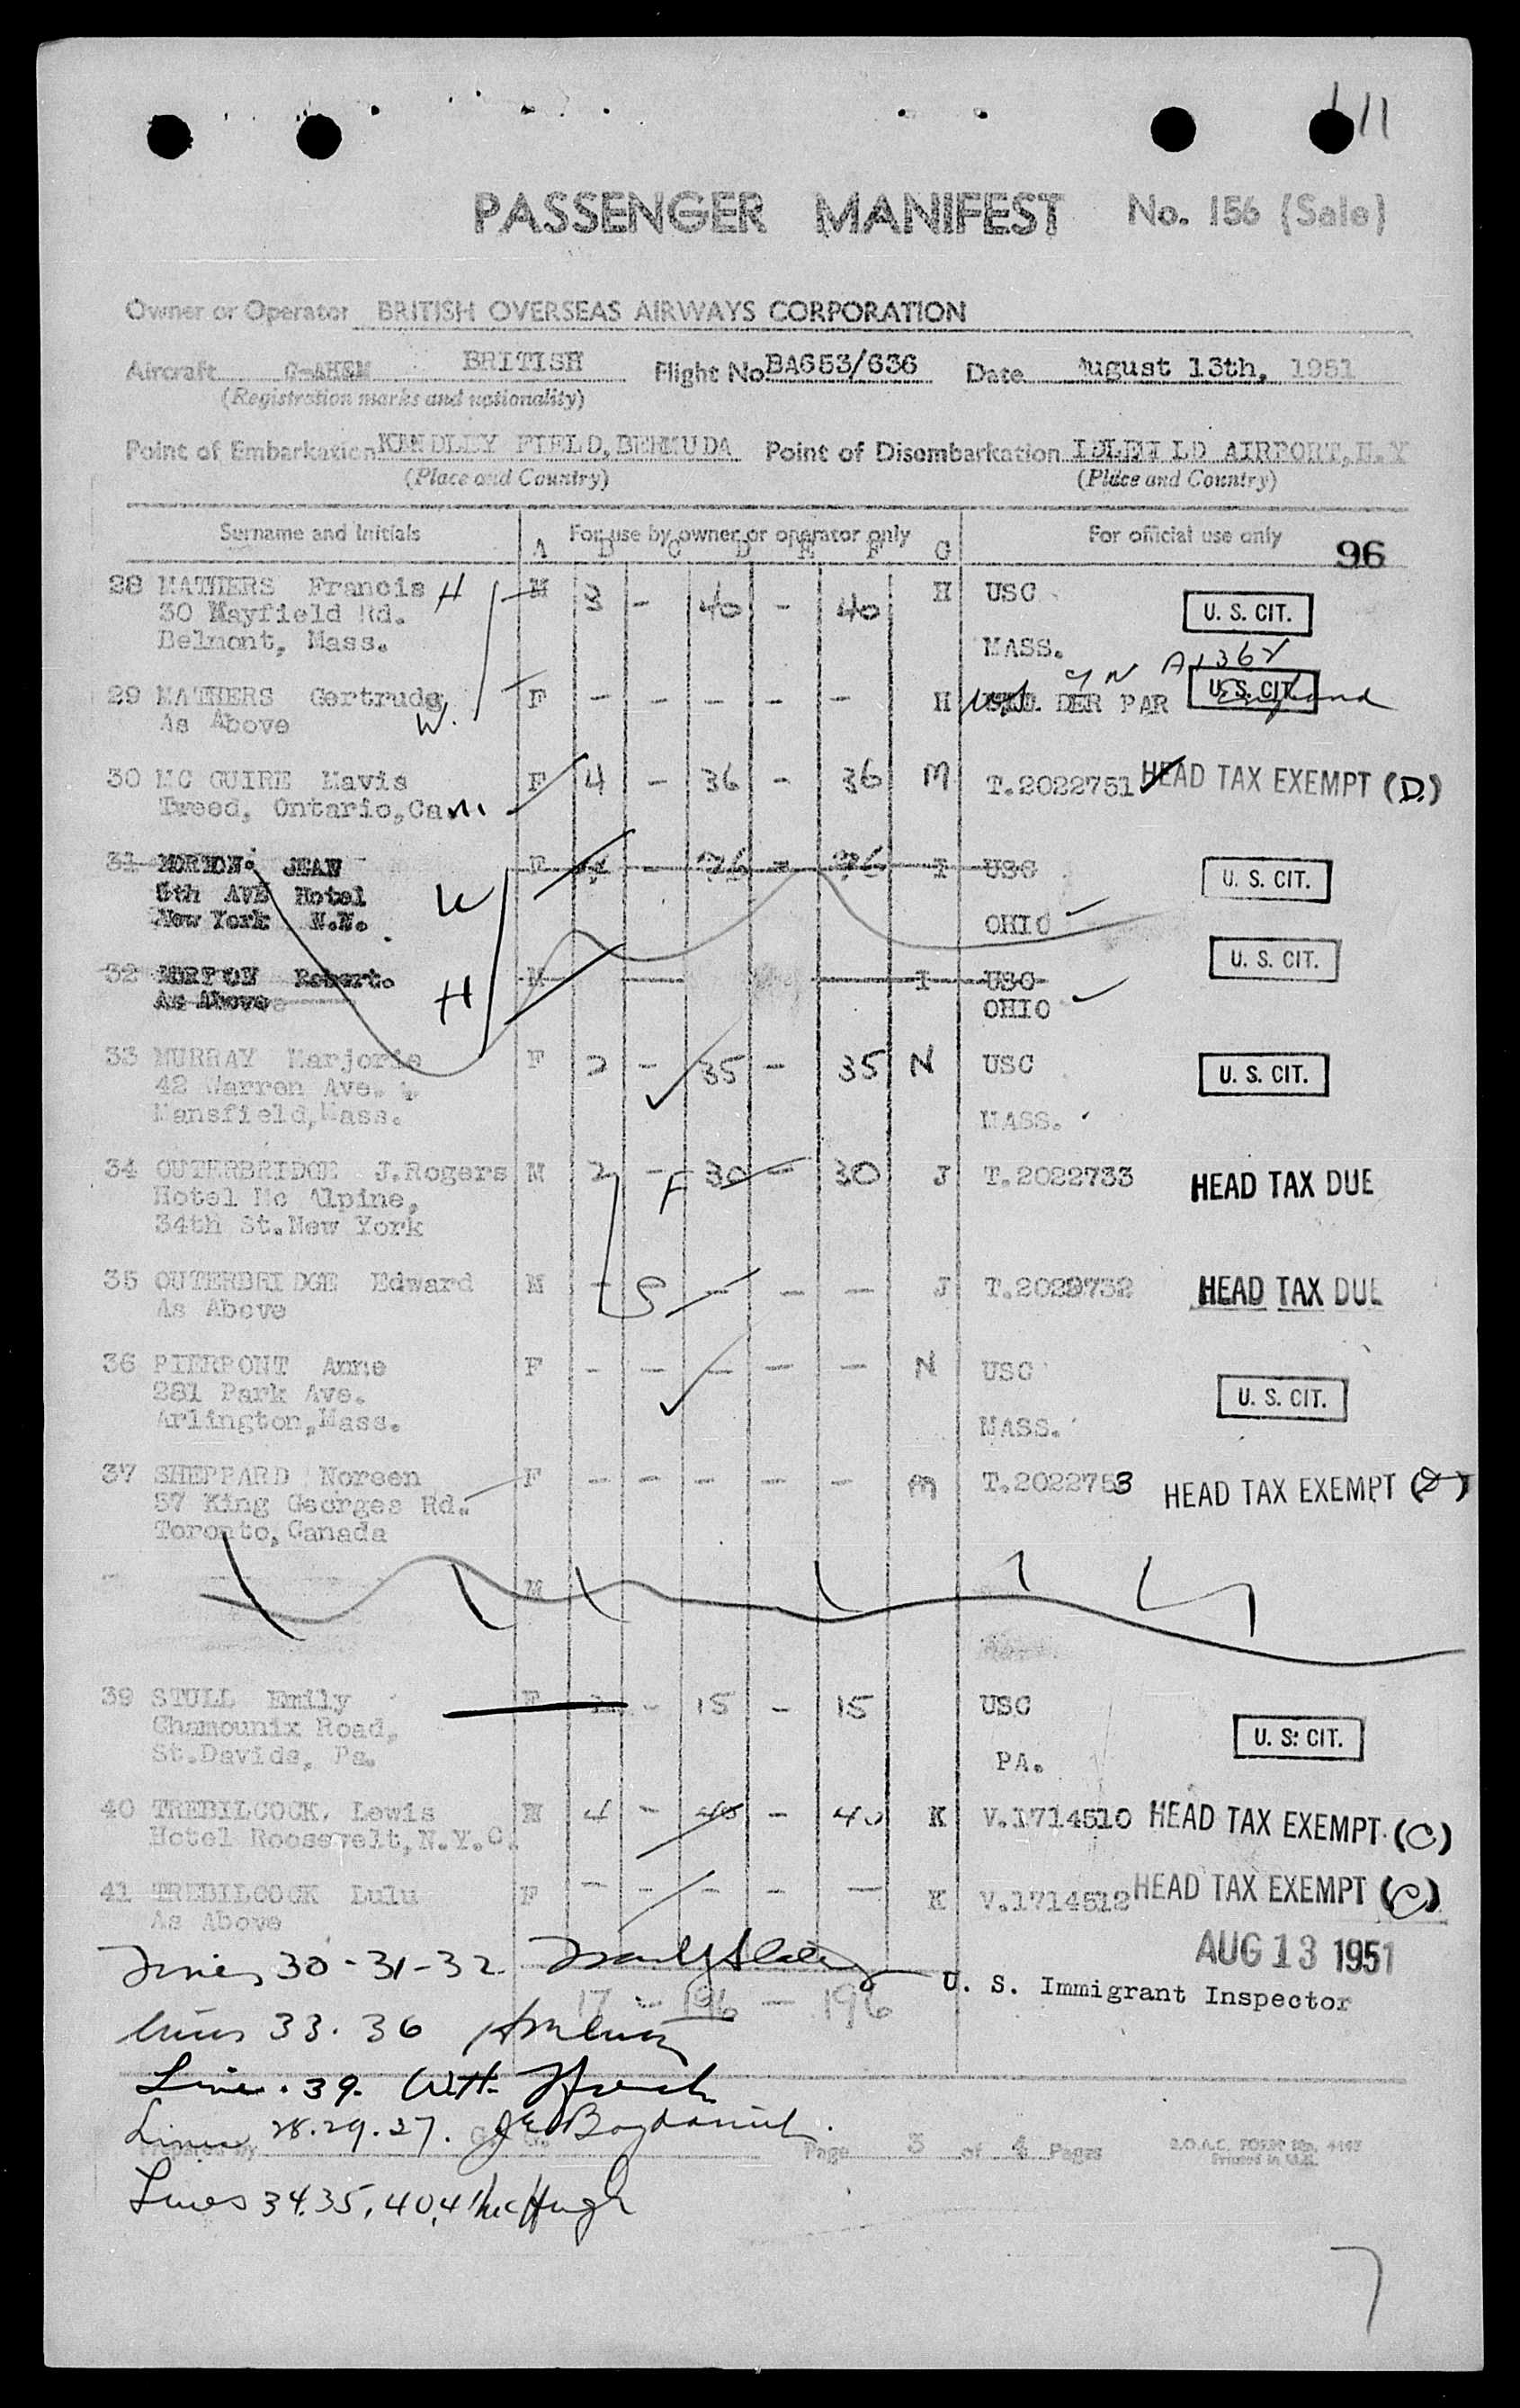 11
PASSENGER MANIFEST No. 156 (Sale)
Owner or Operator BRITISH OVERSEAS AIRWAYS CORPORATION
Aircraft G-AKEM BRITISH Flight No BA653/636 Date August 13th, 1951
(Registration marks and nationality)
Point of Embarkation KINDLEY FIELD, BERMUDA Point of Disembarkation IDLEWILD AIRPORT, N.Y
(Place and Country) (Place and Country)
Surname and Initials For use by owner or operator only For official use only
A B C D E F G 96
28 MATHERS Francis H M 3 - 40 - 40 H USC U. S. CIT.
30 Mayfield Rd.
Belmont, Mass. MASS.
29 MATHERS Gertrude W. F - - - - - H DER PAR U. S. CIT. England
As Above
30 MC GUIRE Mavis F 4 - 36 - 36 M T.2022751 HEAD TAX EXEMPT (D.)
Tweed, Ontario, Can.
31 MORTON JEAN W F - - I USC U. S. CIT.
5th AVE Hotel
New York N.Y. OHIO
32 MORTON Robert. H M I USC U. S. CIT.
As Above OHIO
33 MURRAY Marjorie F 2 - 35 - 35 N USC U. S. CIT.
42 Warren Ave.
Mansfield, Mass. MASS.
34 OUTERBRIDGE J.Rogers M 2 - F 30 - 30 J T.2022733 HEAD TAX DUE
Hotel Mc Alpine,
34th St. New York
35 OUTERBRIDGE Edward M - S - - - J T.2022732 HEAD TAX DUE
As Above
36 PIERPONT Anne F - - - - - N USC U. S. CIT.
281 Park Ave.
Arlington, Mass. MASS.
37 SHEPPARD Noreen F - - - - - M T.2022753 HEAD TAX EXEMPT (D)
57 King Georges Rd.
Toronto, Canada
M
39 STULL Emily F - 15 - 15 USC U. S. CIT.
Chamounix Road,
St.Davids, Pa. PA.
40 TREBILCOCK. Lewis M 4 - 40 - 40 K V.1714510 HEAD TAX EXEMPT (C)
Hotel Roosevelt, N.Y.C.
41 TREBILCOCK Lulu F - - - - - K V.1714512 HEAD TAX EXEMPT (C)
As Above
AUG 13 1951
Lines 30-31-32
U. S. Immigrant Inspector
17 - 196 - 196
Lines 33. 36
Line. 39.
Lines 28.29.37.
Prepared by Page 3 of 4 Pages B.O.A.C. FORM No. 4443
Printed in U.K.
Lines 34.35,40,41 McHugh
7